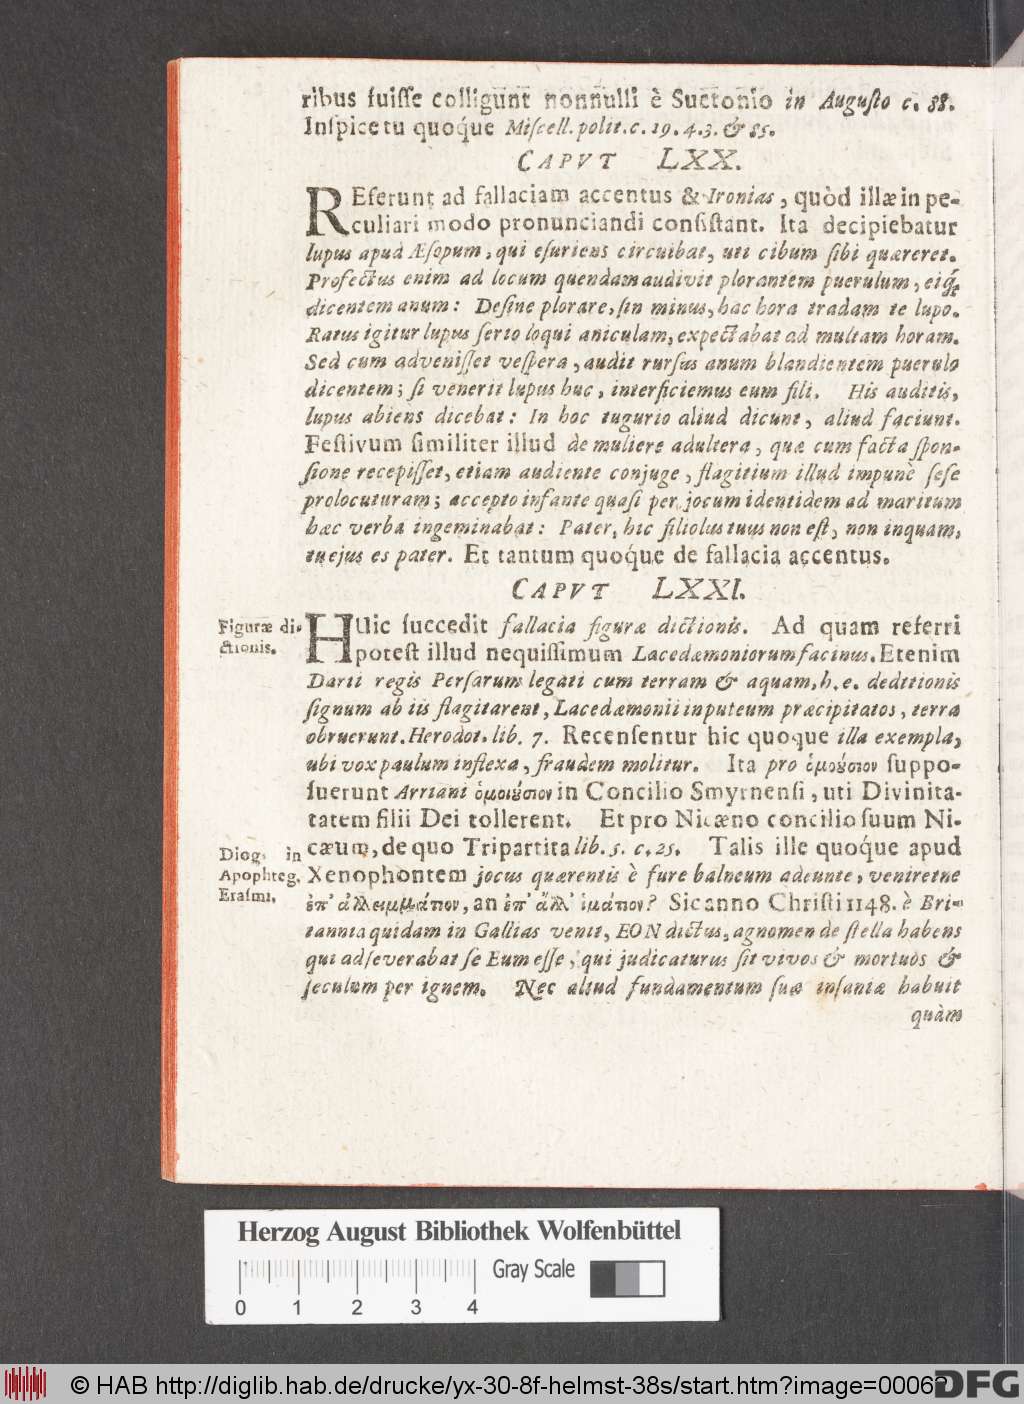 ribus fuiſſe colligunt nonnulli è Suetonio in Auguſto c. 88.
Inſpice tu quoq́ue Miſcell. polit. c. 19. 4. 3. & 85.
CAPVT LXX.
REferunt ad fallaciam accentus & Ironias, quòd illæ in pe-
culiari modo pronunciandi conſiſtant. Ita decipiebatur
lupus apud Æſopum, qui eſuriens circuibat, uti cibum ſibi quæreret.
Profectus enim ad locum quendam audivit plorantem puerulum, eiq́;
dicentem anum: Deſine plorare, ſin minus, hac hora tradam te lupo.
Ratus igitur lupus ſerio loqui aniculam, expectabat ad multam horam.
Sed cum adveniſſet veſpera, audit rurſus anum blandientem puerulo
dicentem; ſi venerit lupus huc, interficiemus eum fili. His auditis,
lupus abiens dicebat: In hoc tugurio aliud dicunt, aliud faciunt.
Feſtivum ſimiliter illud de muliere adultera, quæ cum facta ſpon-
ſione recepiſſet, etiam audiente conjuge, flagitium illud impunè ſeſe
prolocuturam; accepto infante quaſi per jocum identidem ad maritum
hæc verba ingeminabat: Pater, hic filiolus tuus non eſt, non inquam,
tu ejus es pater. Et tantum quoq́ue de fallacia accentus.
CAPVT LXXI.
Figuræ di-
ctionis.
HUic ſuccedit fallacia figuræ dictionis. Ad quam referri
poteſt illud nequiſſimum Lacedæmoniorum facinus. Etenim
Darii regis Perſarum legati cum terram & aquam, h. e. deditionis
ſignum ab iis flagitarent, Lacedæmonii in puteum præcipitatos, terra
obruerunt. Herodot. lib. 7. Recenſentur hic quoque illa exempla,
ubi vox paulum inflexa, fraudem molitur. Ita pro ὁμοούσιον ſuppo-
ſuerunt Arriani ὁμοιούσιον in Concilio Smyrnenſi, uti Divinita-
tatem filii Dei tollerent. Et pro Nicæno concilio ſuum Ni-
cæum, de quo Tripartita lib. 5. c. 25. Talis ille quoq́ue apud
Diog. in
Apophteg.
Eraſmi.
Xenophontem jocus quærentis è fure balneum adeunte, veniretne
ἐπ' ἀλλειμμάτιον, an ἐπ' ἄλλ' ἱμάτιον? Sic anno Chriſti 1148. è Bri-
tannia quidam in Gallias venit, EON dictus, agnomen de ſtella habens
qui adſeverabat ſe Eum eſſe, qui judicaturus ſit vivos & mortuos &
ſeculum per ignem. Nec aliud fundamentum ſuæ inſaniæ habuit
quàm
Herzog August Bibliothek Wolfenbüttel
Gray Scale
0 1 2 3 4
© HAB http://diglib.hab.de/drucke/yx-30-8f-helmst-38s/start.htm?image=00062
DFG